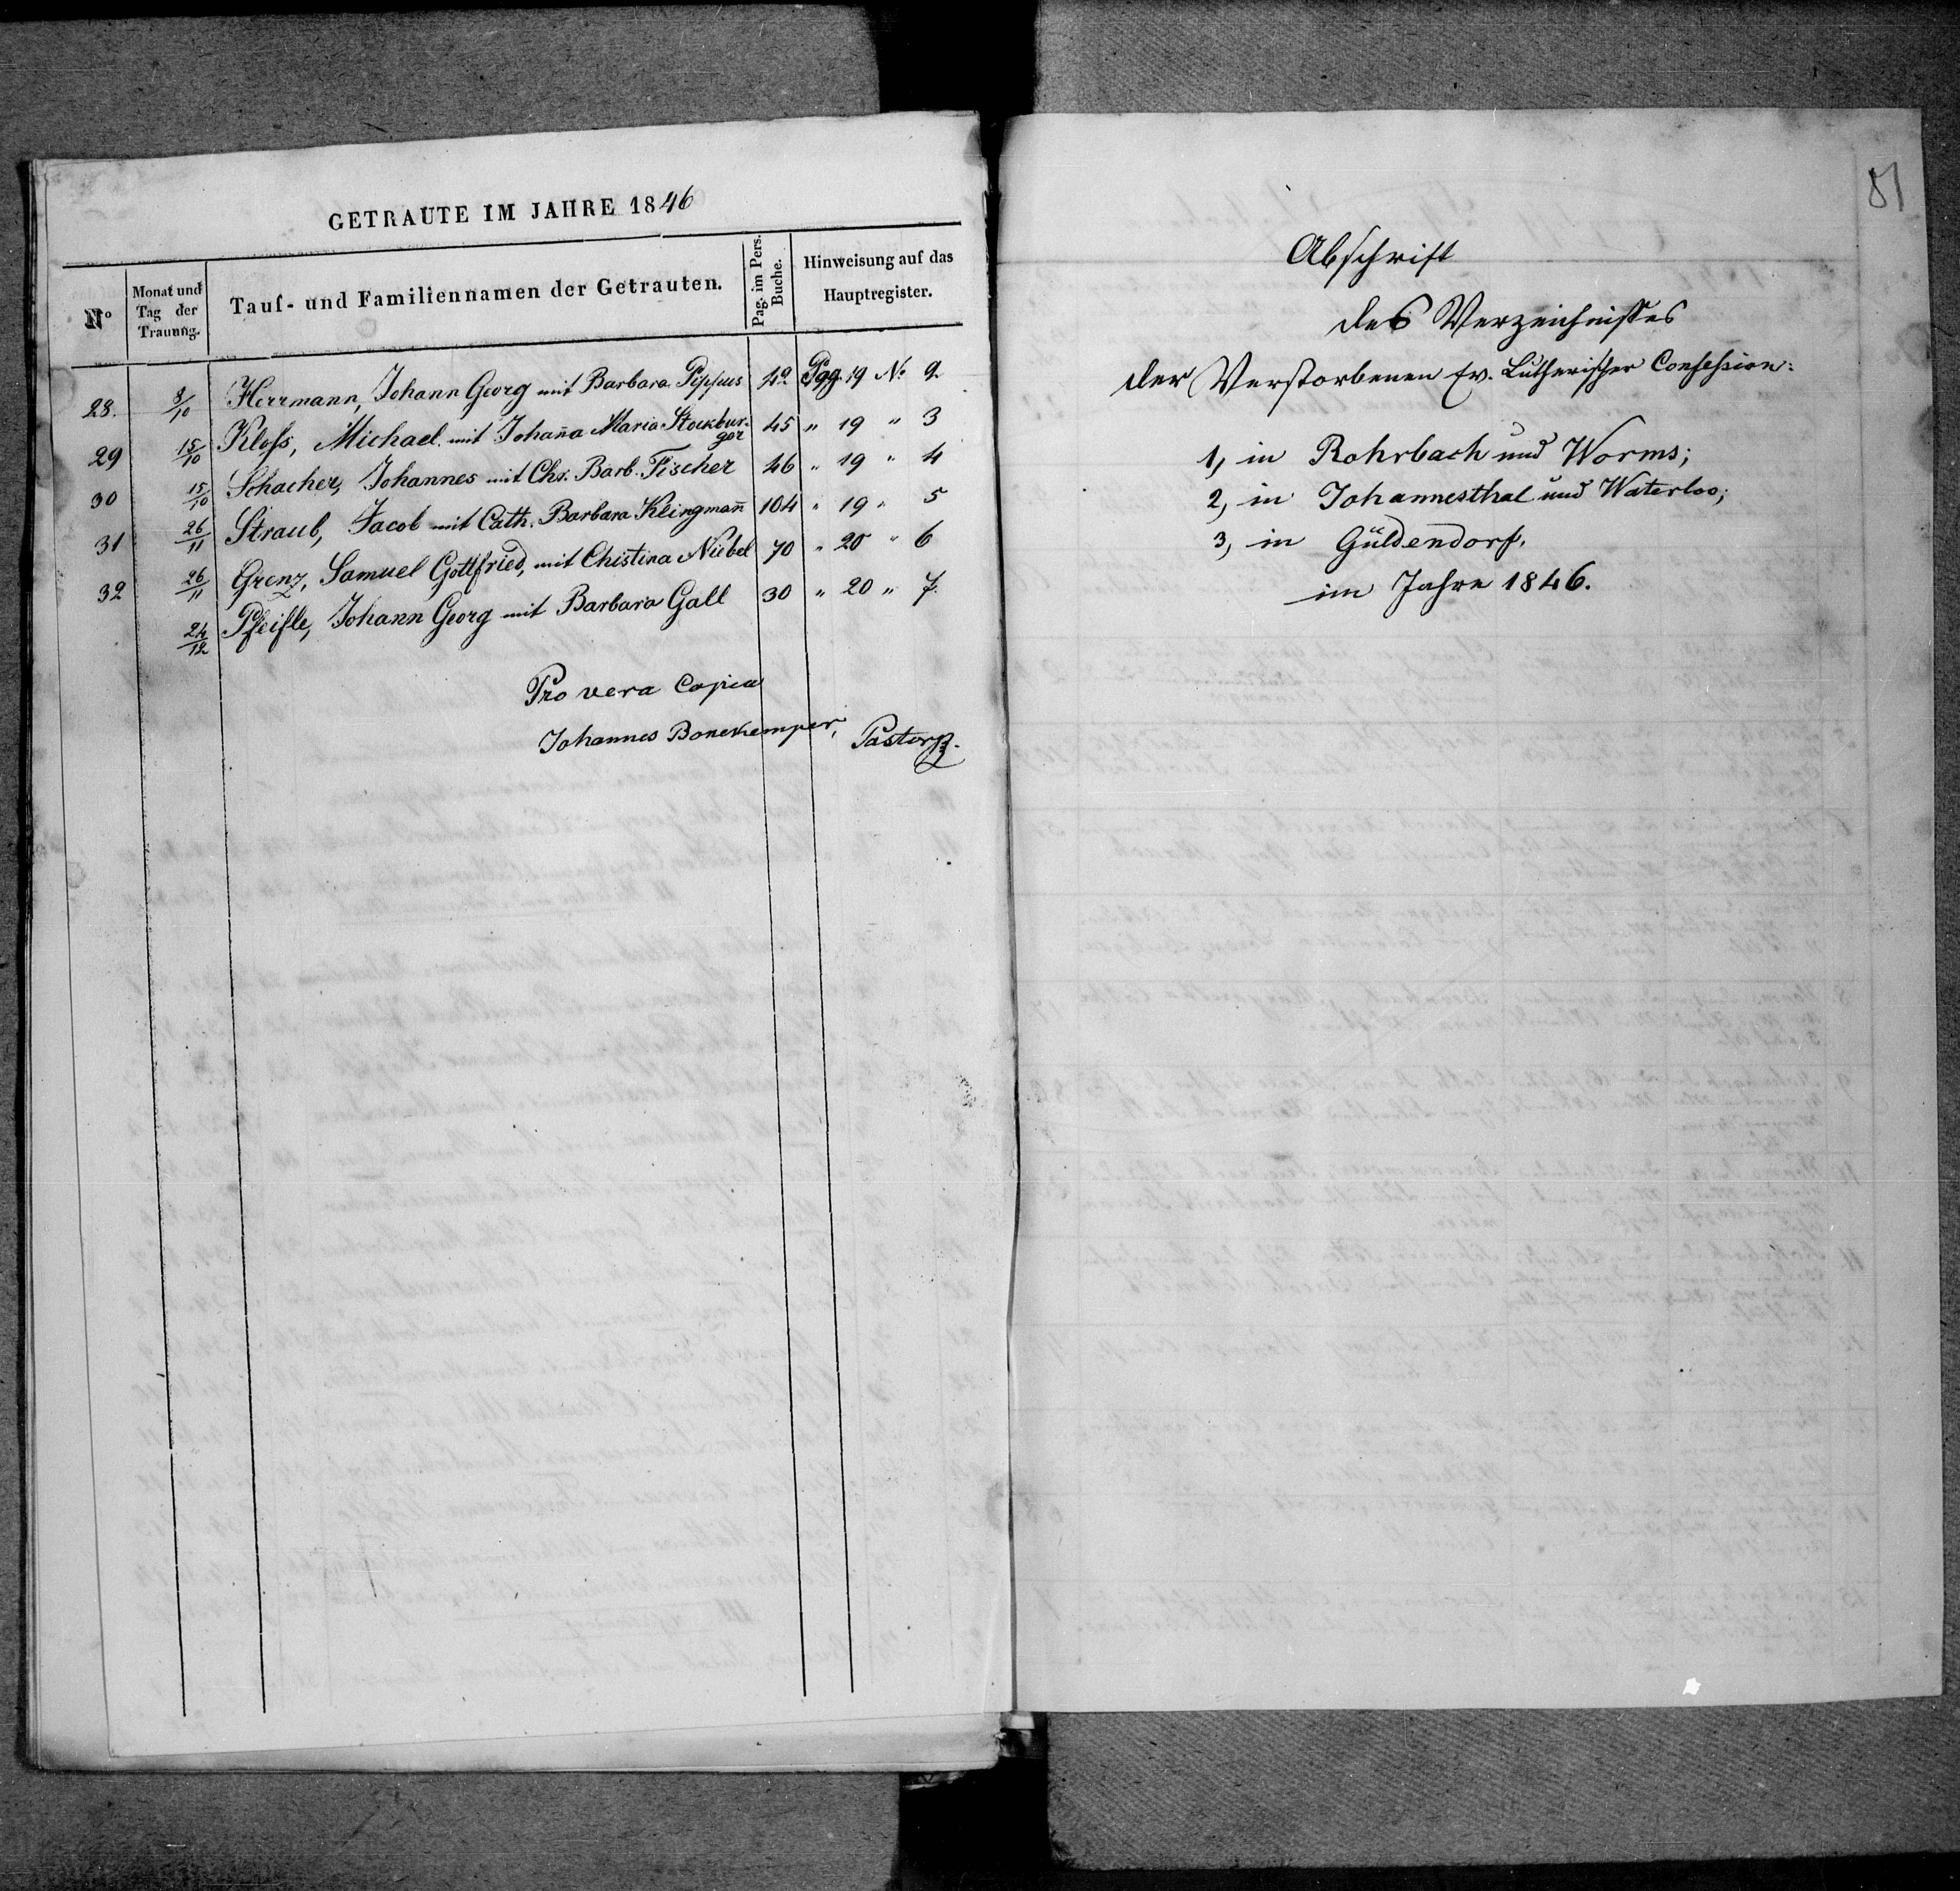 GETRAUTE IM JAHRE 1846
No
Monat und Tag der Trauung.
Tauf- und Familiennamen der Getrauten.
Pag. im Pers. Buche.
Hinweisung auf das Hauptregister.
28. 8/10 Herrmann, Johann Georg mit Barbara Pippus 42 Pag. 19 No. 2
29 15/10 Kloss, Michael mit Johan̄a Maria Stockbur-
ger 45 " 19 " 3
30 15/10 Schacher, Johannes mit Chr. Barb. Fischer 46 " 19 " 4
31 26/11 Straub, Jacob mit Cath. Barbara Klingman̄ 104 " 19 " 5
32 26/11 Grenz, Samuel Gottfried, mit Chistina Niebel 70 " 20 " 6
24/12 Pfeifle, Johann Georg mit Barbara Gall 30 " 20 " 7.
Pro vera Copia
Johannes Bonekemper, Pastor
81
Abschrift
des Verzeichnisses
der Verstorbenen Ev. Lutherischer Confession:
1, in Rohrbach und Worms;
2, in Johannesthal und Waterloo;
3, in Güldendorf.
im Jahre 1846.